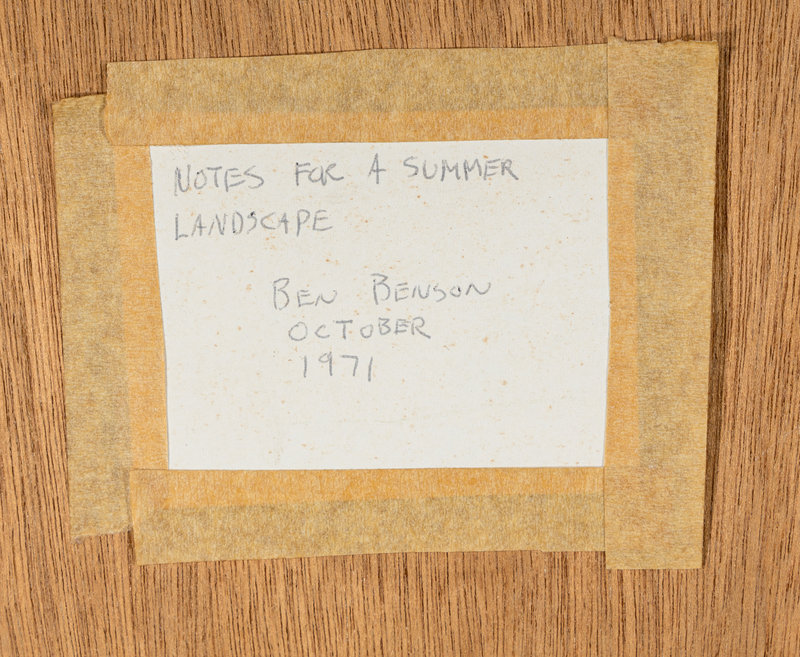 NOTES FOR A SUMMER
LANDSCAPE
BEN BENSON
OCTOBER
1971